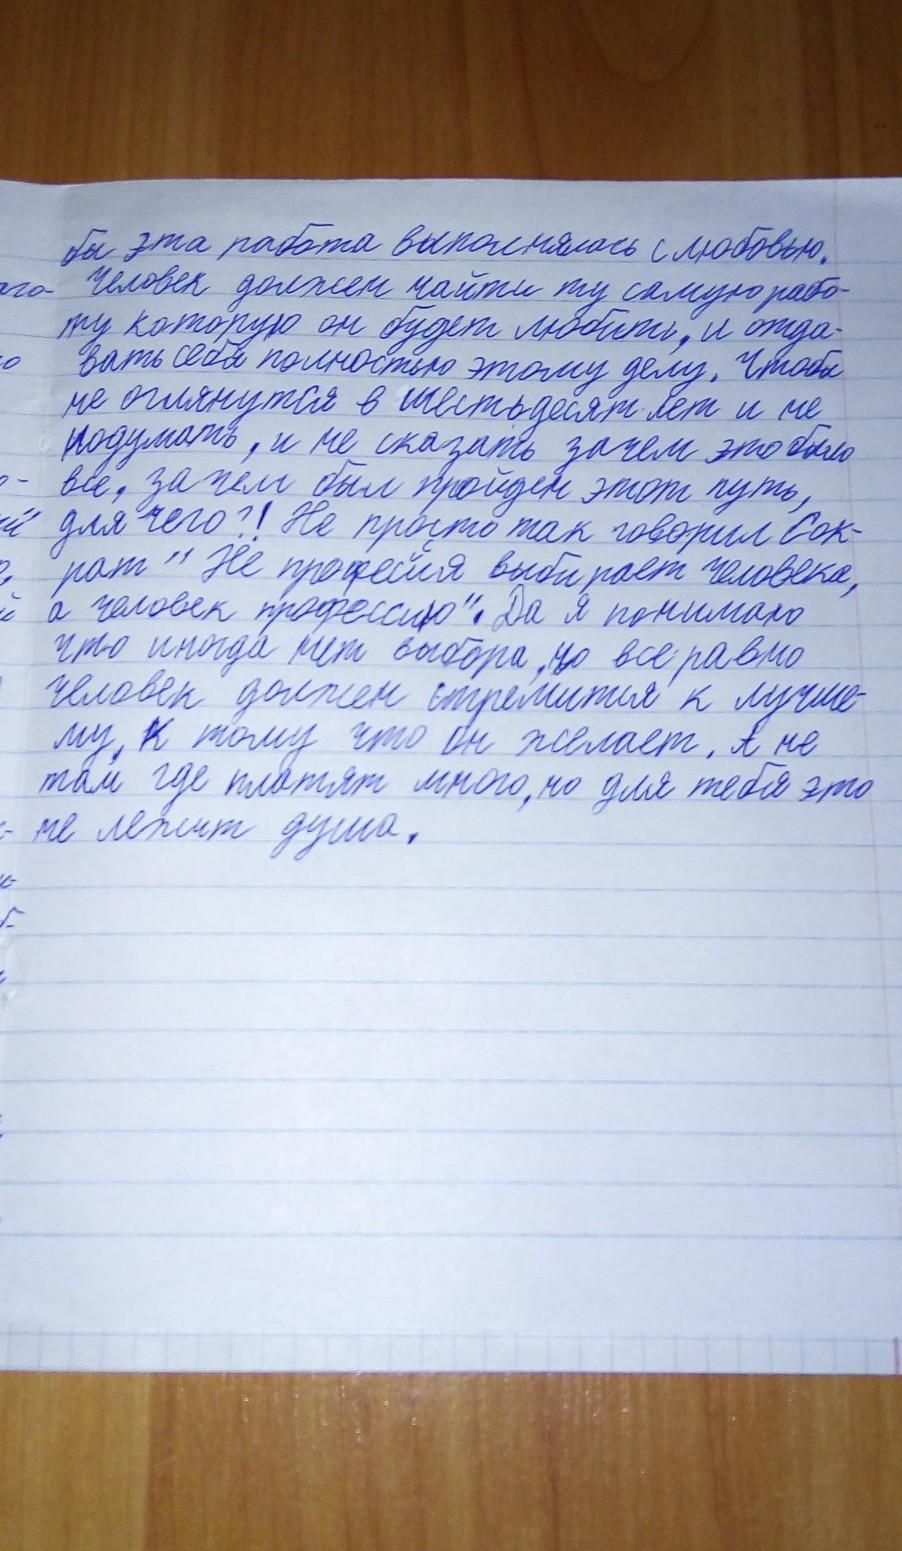 бы эта работа выполнялось с любовью.
Человек должен найти ту самую рабо-
ту которую он будет любить, и отда-
вать себя полностью этому делу. Чтобы
не оглянутся в шестьдесят лет и не
подумать, и не сказать зачем это было
все, зачем был пройден этот путь,
для чего?! Не просто так говорил Сок-
рат " Не професия выбирает человека,
а человек профессию". Да я понимаю
что иногда нет выбора, но все равно
человек должен стремится к лучше-
му, к тому что он желает. А не
там где платят много, но для тебя это
не лежит душа.